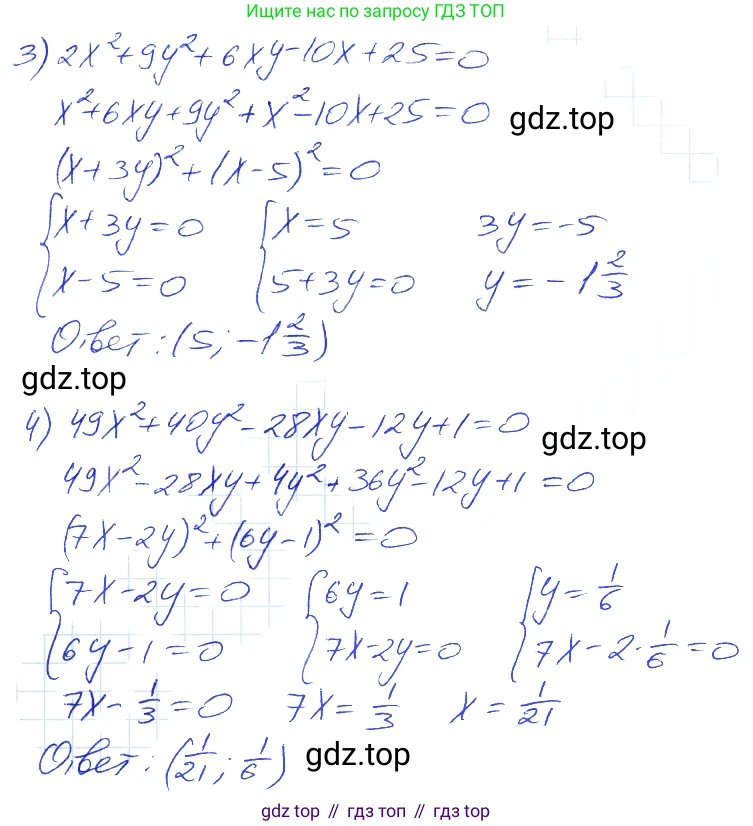 Ищите нас по запросу ГДЗ ТОП
3) 2x² + 9y² + 6xy - 10x + 25 = 0
x² + 6xy + 9y² + x² - 10x + 25 = 0
gdz.top
(x + 3y)² + (x - 5)² = 0
{ x + 3y = 0 { x = 5 3y = -5
{ x - 5 = 0 { 5 + 3y = 0 y = -1 2/3
Ответ: (5; -1 2/3)
gdz.top
4) 49x² + 40y² - 28xy - 12y + 1 = 0
gdz.top
49x² - 28xy + 4y² + 36y² - 12y + 1 = 0
(7x - 2y)² + (6y - 1)² = 0
{ 7x - 2y = 0 { 6y = 1 { y = 1/6
{ 6y - 1 = 0 { 7x - 2y = 0 { 7x - 2 · 1/6 = 0
7x - 1/3 = 0 7x = 1/3 x = 1/21
Ответ: (1/21; 1/6)
gdz.top
gdz.top // гдз топ // gdz.top // гдз топ